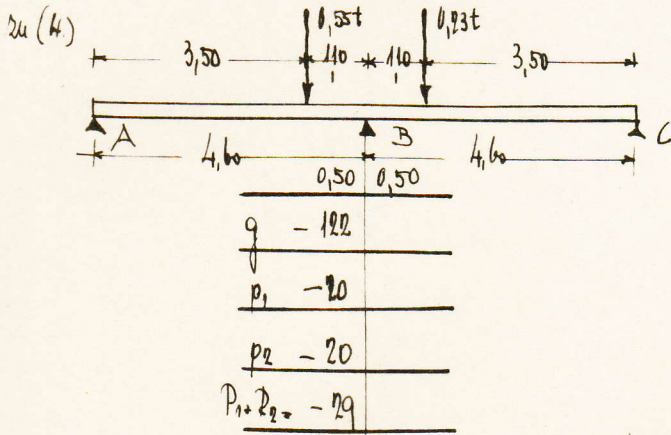 zu (4.)
0,55t 0,23t
3,50 1,10 1,10 3,50
A B C
4,60 4,60
0,50 0,50
g - 122
p1 - 20
p2 - 20
P1+P2= - 29